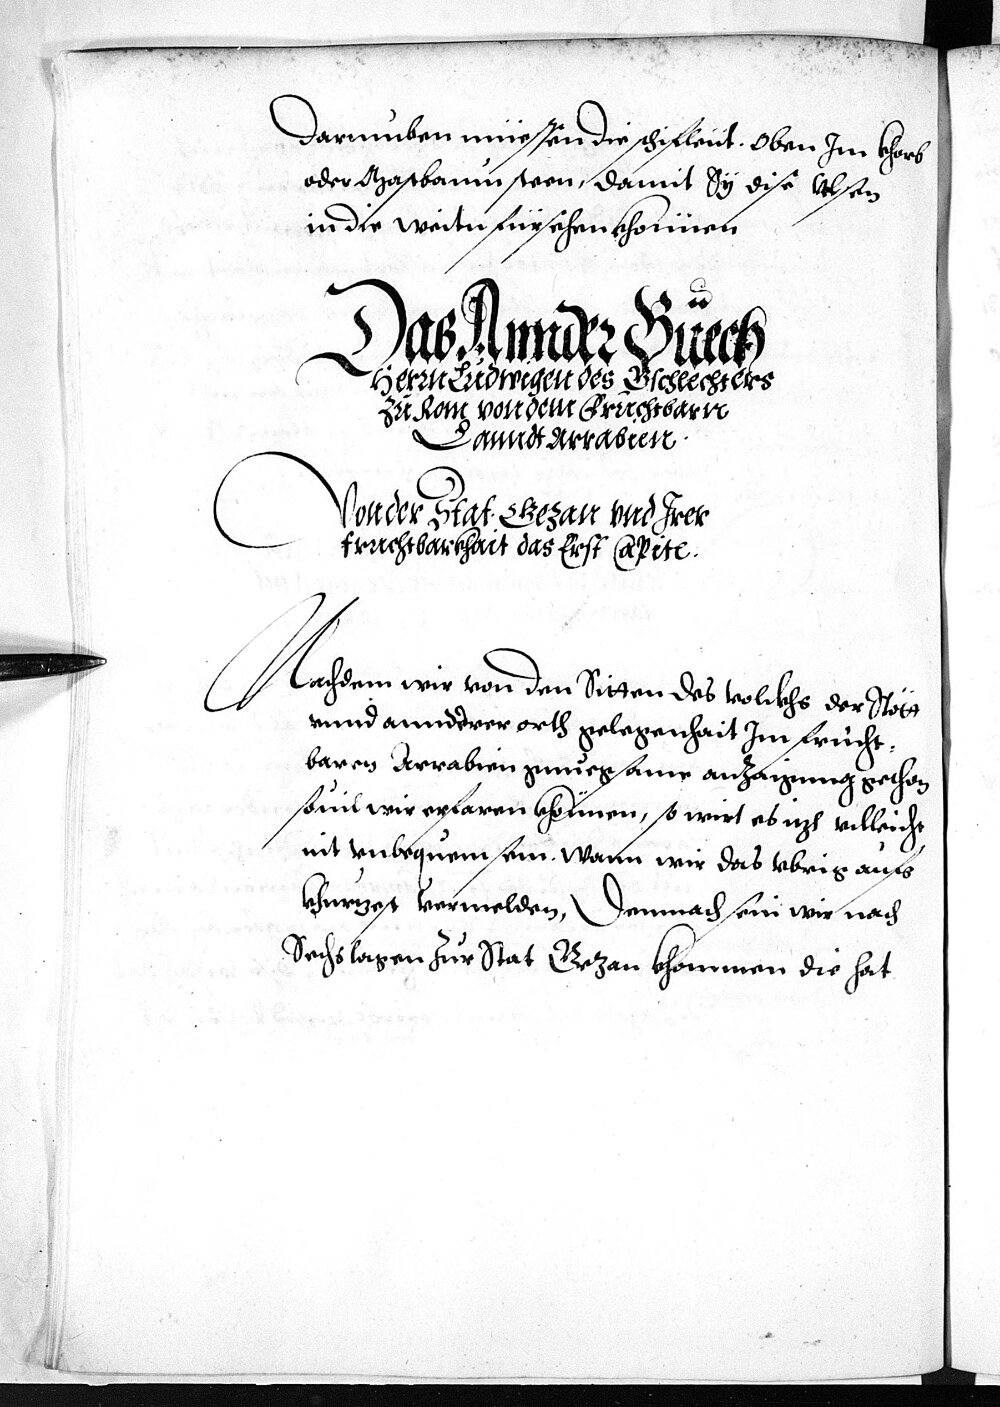 darumben müessen die schifleüt. Oben Im khorb
oder Mastbaum steen, damit Sy dise velsen
in die weitn fürsehen khonnen
Das Annder Büech
Herrn Ludwigen des Gschlechters
zu Rom von dem Fruchtbarn
Lanndt Arrabien.
Von der Stat Gezan vnd Irer
fruchtbarkhait das Erst Capitl.
Nachdem wir von den Sitten des volckhs der Stött
vnnd annderer orth gelegenhait Im frucht-
baren Arrabien genuegsame anzaigung gethon
souil wir erfaren khönnen, so wirt es izt villeicht
nit vnbequem sein. Wann wir das vbrig aufs
khurzest vermelden, Demnach sein wir nach
Sechs tagen zur Stat Gezan khommen die hat